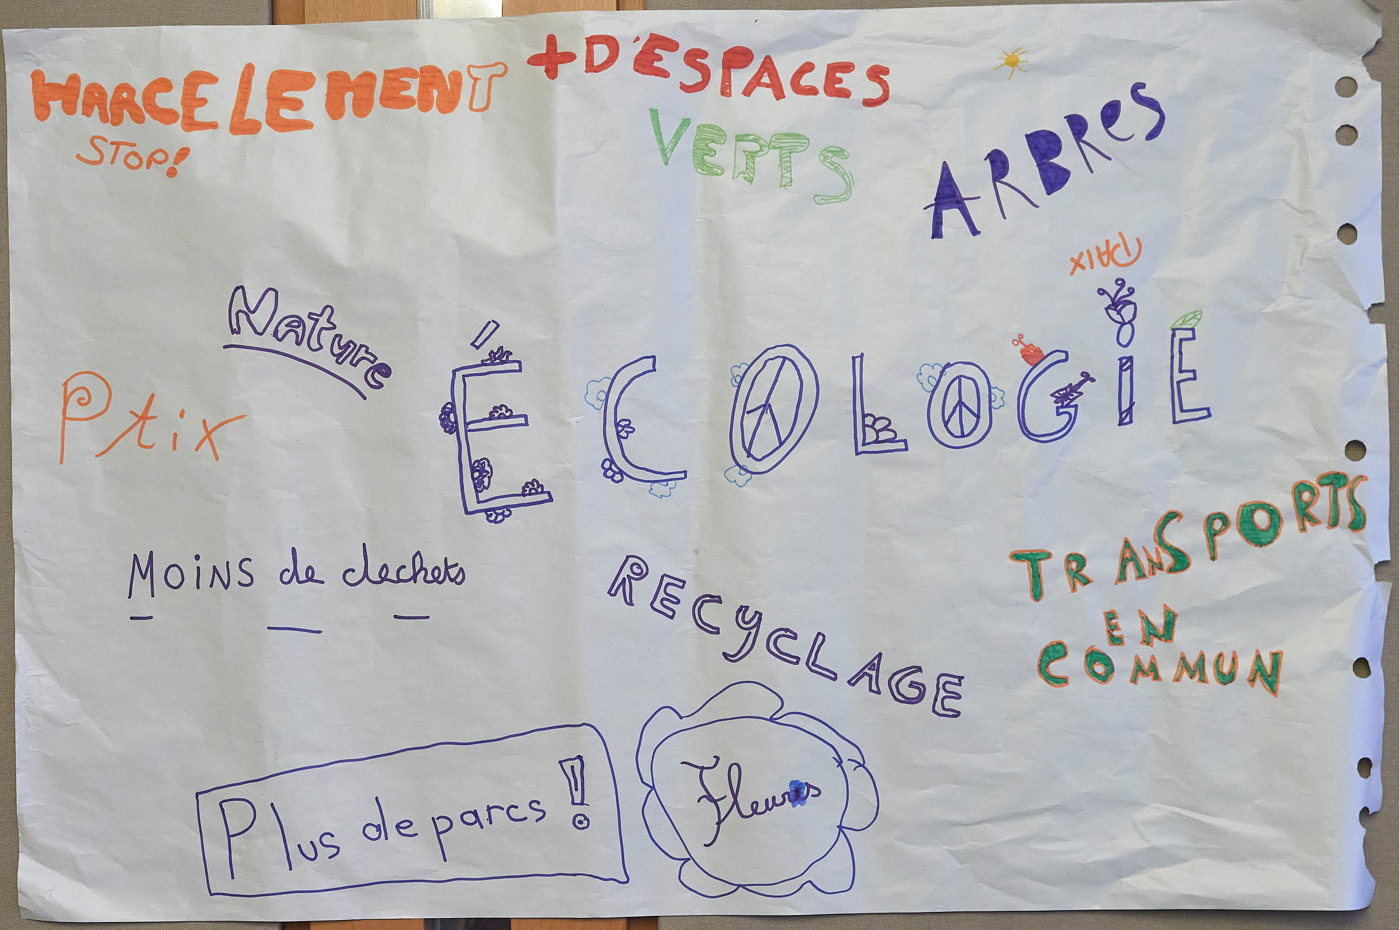 HARCELEMENT
STOP!
+ D'ESPACES
VERTS
ARBRES
PAIX
Nature
ÉCOLOGIE
Ptix
MOINS de dechets
RECYCLAGE
TRANSPORTS
EN
COMMUN
Plus de parcs !
Fleurs